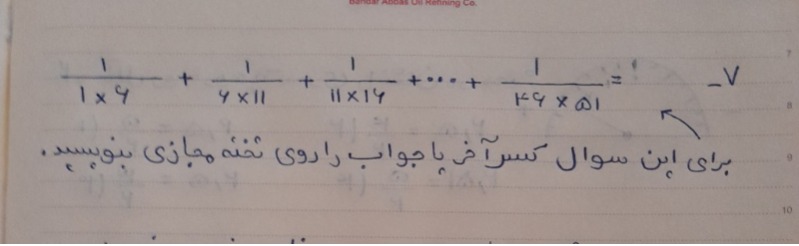 Bandar Abbas Oil Refining Co.
۷_ ۱/(۱×۶) + ۱/(۶×۱۱) + ۱/(۱۱×۱۶) + ... + ۱/(۴۶×۵۱) = ؟
برای این سوال کسر آخر یا جواب را روی تخته مجازی بنویسید.
7
8
9
10